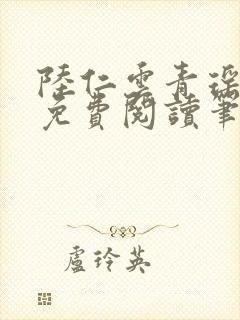 陸仁雲青瑶
免費閱讀筆
盧玲英